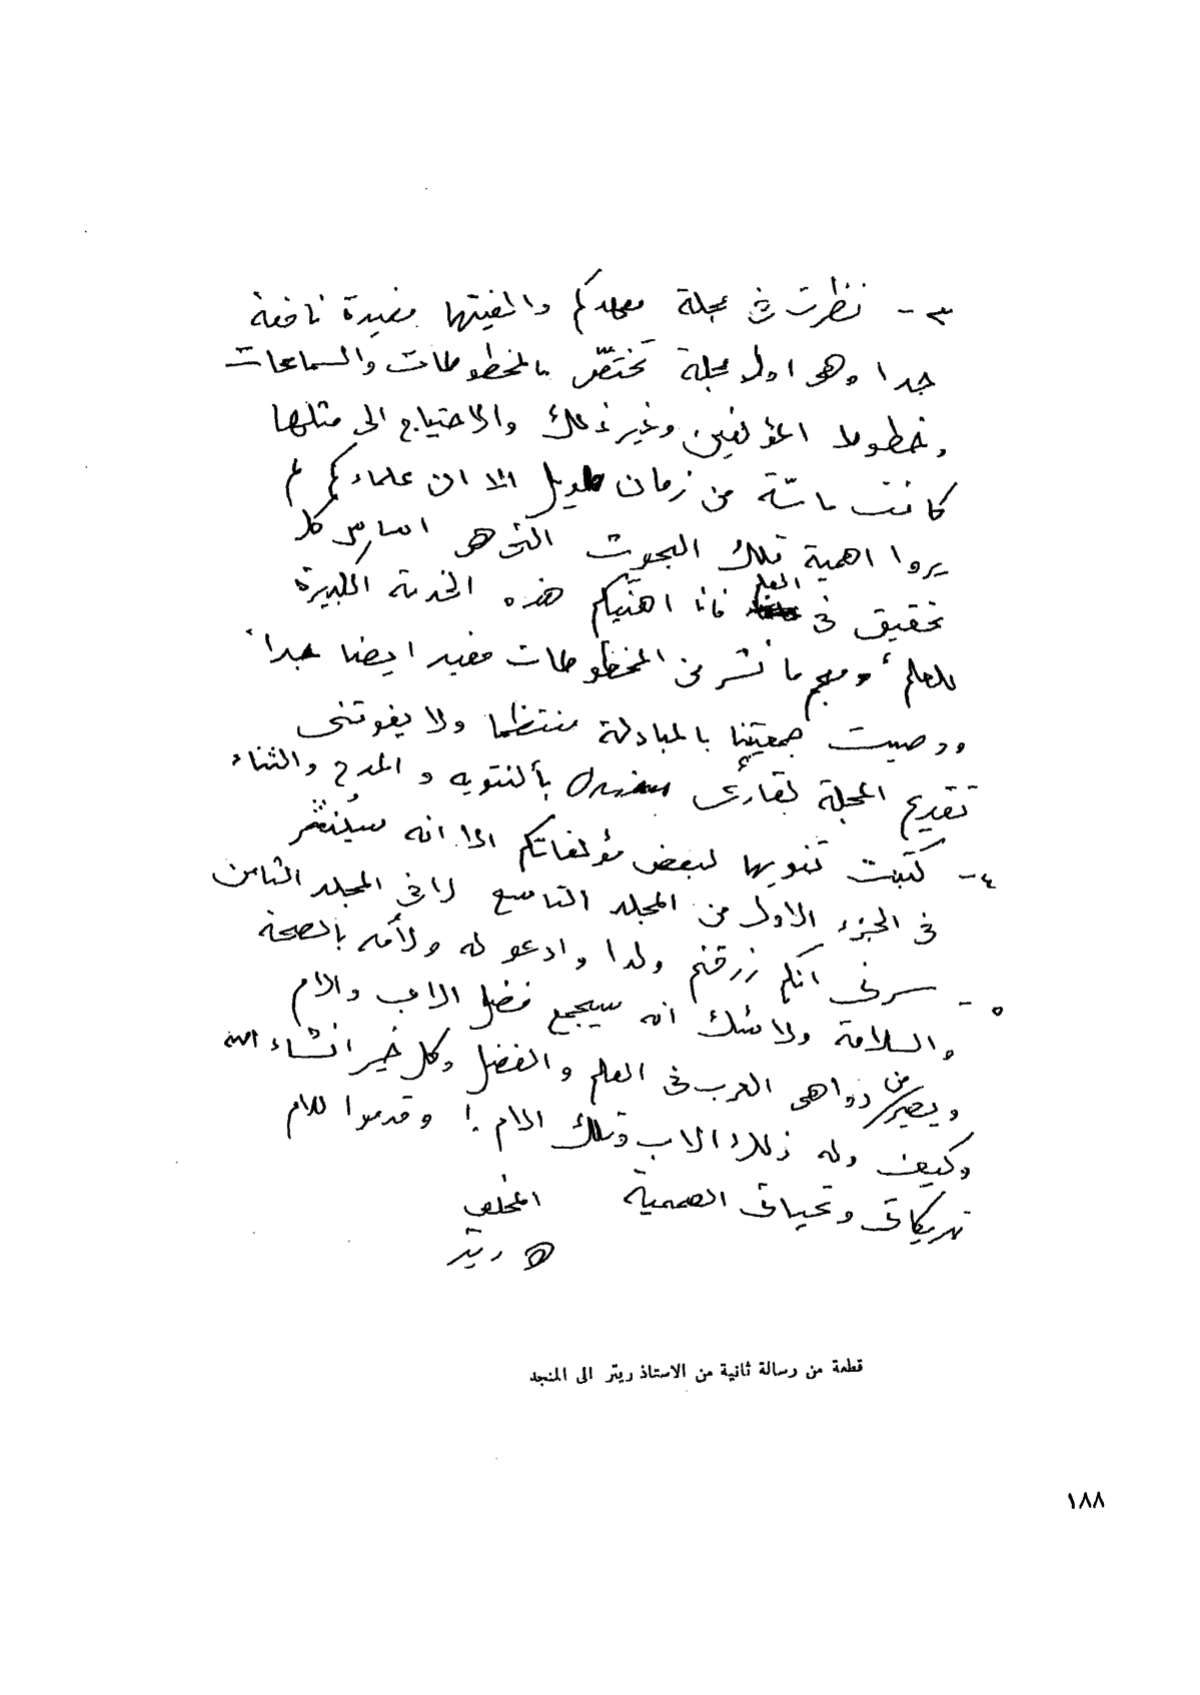 ٣- نظرت في مجلة معهدكم والفيتها مفيدة نافعة
جدا وهي اول مجلة تختصّ بالمخطوطات والسماعات
وخطوط المؤلفين وغير ذلك والاحتياج الى مثلها
كانت ماسّة من زمان طويل الا ان علماءكم لم
يروا اهمية تلك البحوث التي هي اساس كل
تحقيق في العلم فانا اهنّيكم هذه الخدمة الكبيرة
للعلم، ومعجم ما نشر من المخطوطات مفيد ايضا جداً
ووصيت جمعيتنا بالمبادلة منتظما ولا يفوتني
تقديم المجلة لقارئي بألتنويه والمدح والثناء
٤- كتبت تنويها لبعض مؤلفاتكم الا انه سيُنشر
في الجزء الاول من المجلد التاسع لا في المجلد الثامن
٥- سرني انكم زرقتم ولدا وادعو له ولأمه بالصحة
والسلامة ولا شك انه سيجمع فضل الاب والام
ويصير من دواهي العرب في العلم والفضل وكل خير انشاء الله
وكيف وله ذلك الاب وتلك الام! وقدموا للام
تبريكاتي وتحياتي الصميمية المخلص
ه ريتر
قطعة من رسالة ثانية من الاستاذ ريتر الى المنجد
١٨٨